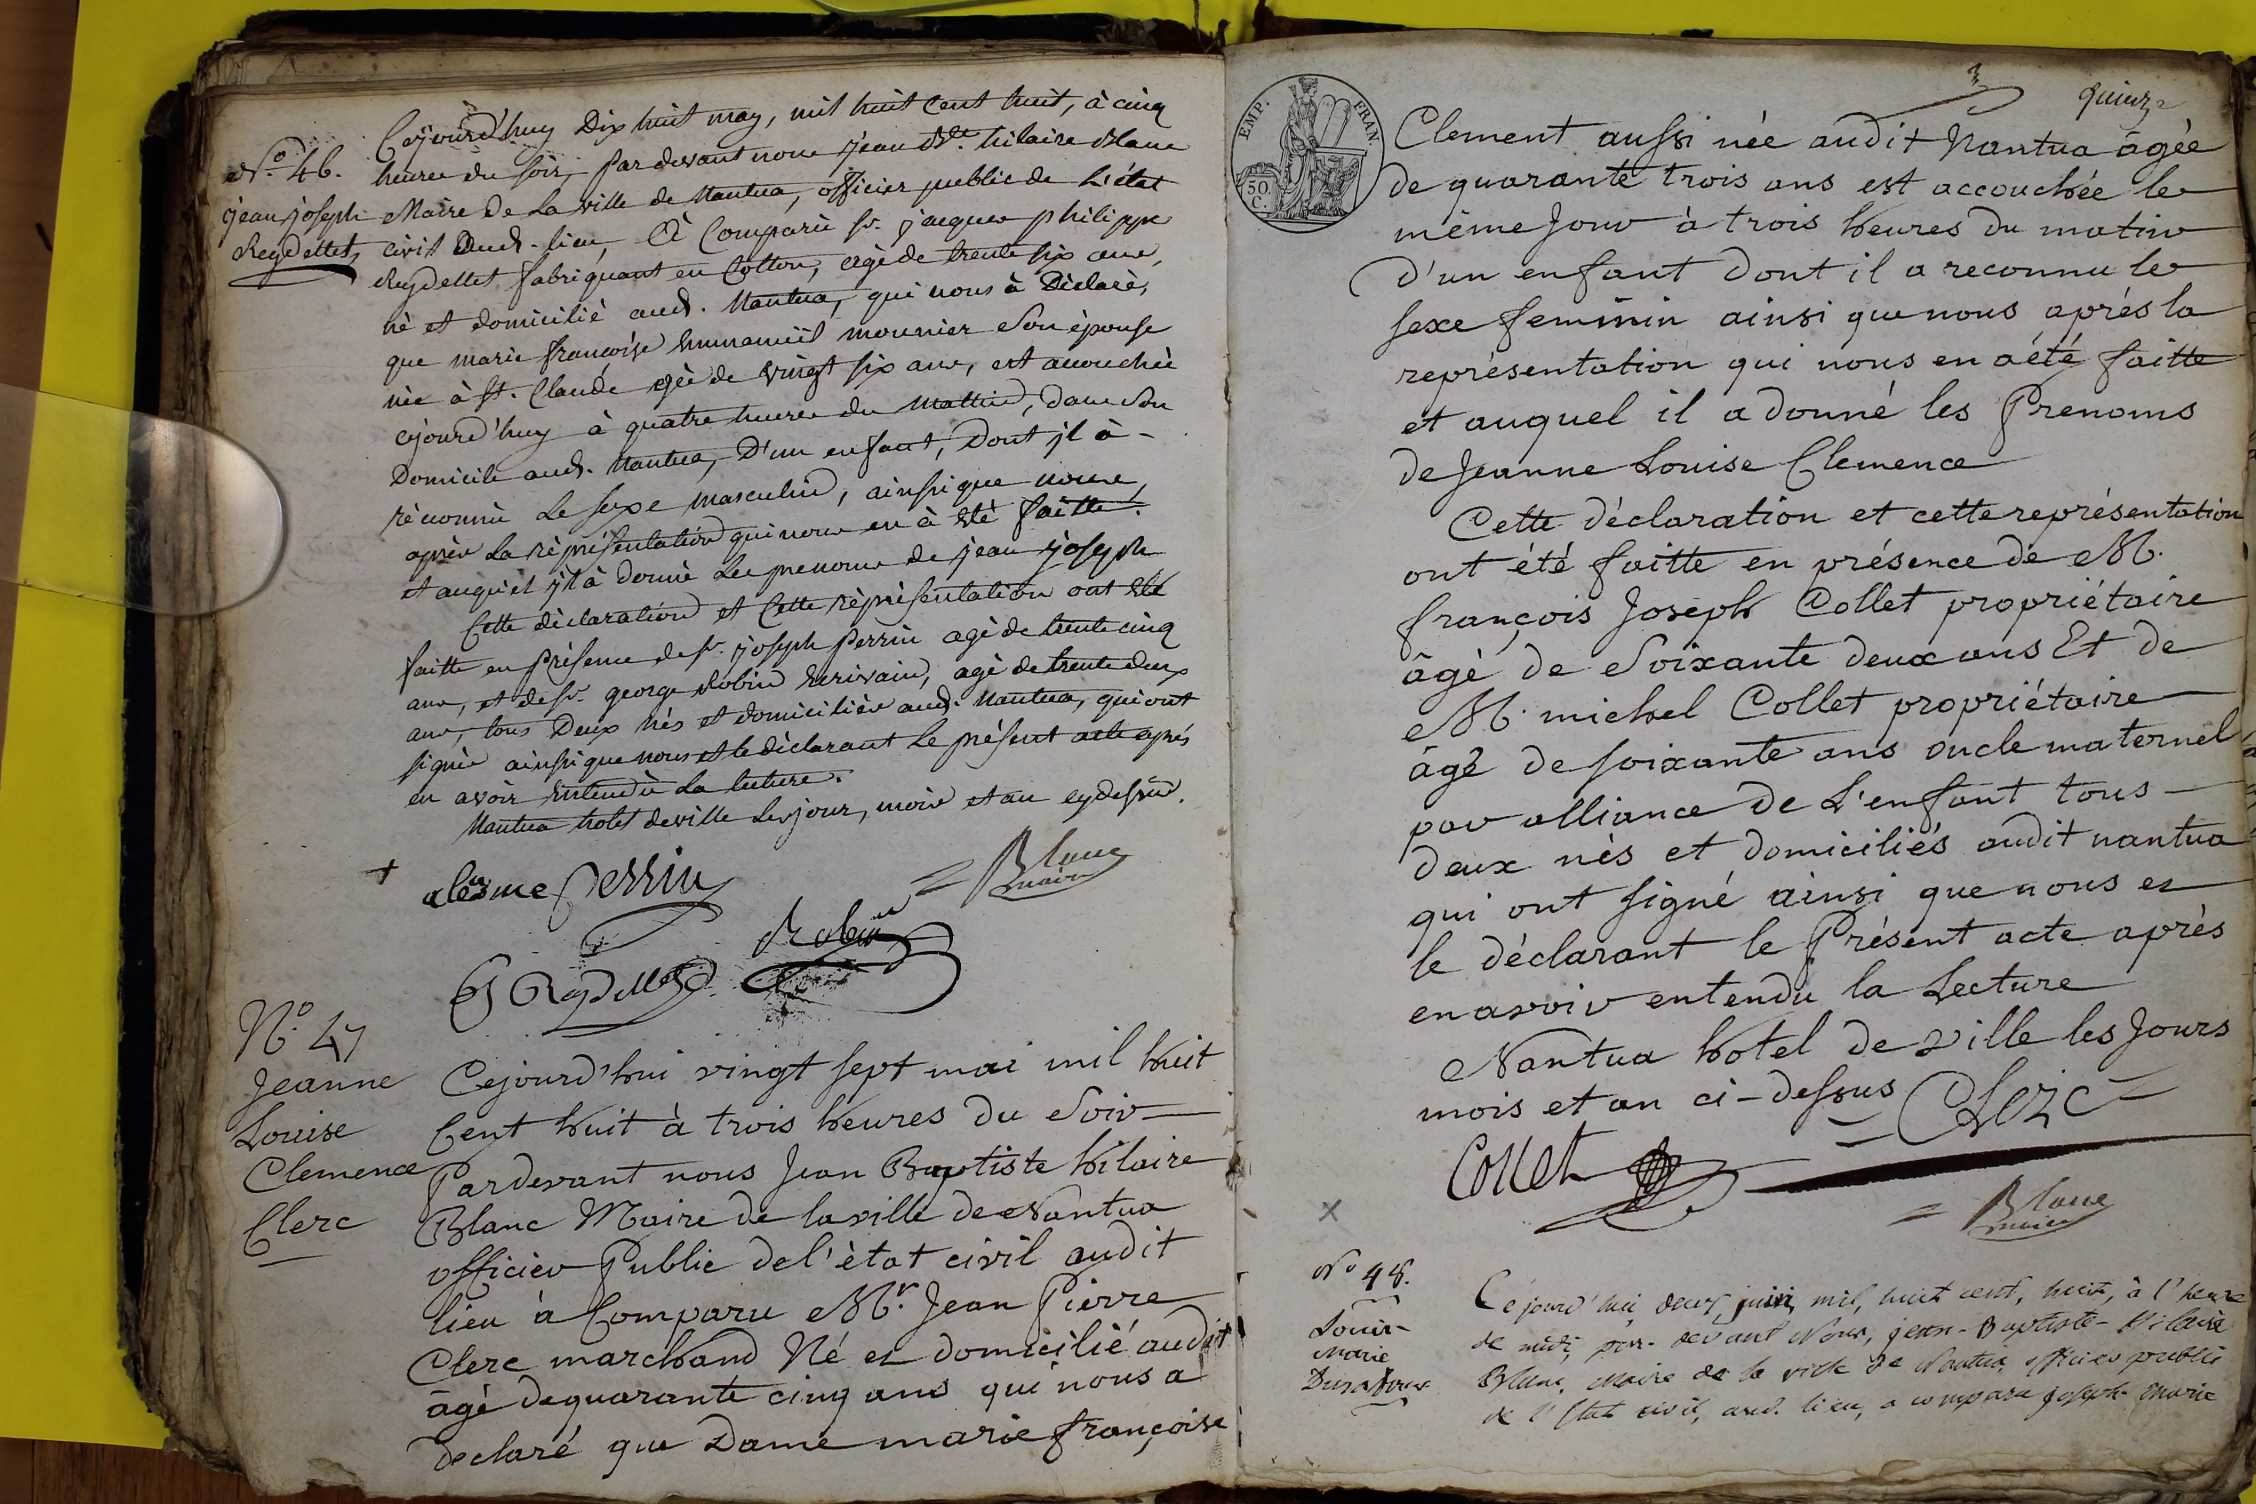 N.o 46.
jean joseph
Reydellet,
Cejourd'huy Dix huit may, mil huit Cent huit, à cinq
heures du soir, par devant nous jean Bte. hilaire Blanc
Maire de La ville de Nantua, officier public de L'état
civil Aud. lieu, A Comparü sr. jacques philippe
Reydellet fabriquant en Cotton, agé de trente six ans,
né et domicilié aud. Nantua, qui nous à Déclaré,
que marie françoise Emmanuël mounier Son épouse
née à St. Claude agée de vingt six ans, est accouchée
cejourd'huy à quatre heures du Mattin, dans Son
Domicile aud. Nantua, D'un enfant, Dont jl à -
réconnu Le sexe masculin, ainsi que nous,
après La réprésentation qui nous en à Eté faitte.
et auquel jl à donné Les prenoms de jean joseph
Cette déclaration et Cette réprésentation ont Eté
faitte en présence de sr. joseph Perrin agé de trente cinq
ans, et de sr. george Robin Ecrivain, agé de trente deux
ans, tous Deux Nés et domiciliés aud. Nantua, qui ont
signés ainsi que nous et le déclarant Le présent acte après
en avoir Entendu La lecture.
Nantua hotel de ville Les jour, mois et an cy dessus.
Perrin
= Blanc
maire
Robin
Reydellet
N.o 47
Jeanne
Louise
Clemence
Clerc
Cejourd'hui vingt sept mai mil huit
Cent huit à trois heures du Soir
Pardevant nous Jean Baptiste hilaire
Blanc Maire de la ville de Nantua
officier Public de l'état civil audit
lieu à Comparu Mr. Jean Pierre
Clerc marchand Né et domicilié audit
âgé de quarante cinq ans qui nous a
declaré que Dame marie françoise
quinze
EMP. FRAN.
50 C.
Clement aussi née audit Nantua âgée
de quarante trois ans est accouchée le
même Jour à trois heures du matin
d'un enfant dont il a reconnu le
sexe feminin ainsi que nous après la
représentation qui nous en a été faitte
et auquel il a donné les Prenoms
de Jeanne Louise Clemence
Cette déclaration et cette représentation
ont été faitte en présence de M.
françois Joseph Collet propriétaire
âgé de Soixante deux ans Et de
M. michel Collet propriétaire
âgé de soixante ans oncle maternel
par alliance de L'enfant tous
deux nés et domiciliés audit nantua
qui ont signé ainsi que nous et
le déclarant le Présent acte après
en avoir entendu la Lecture
Nantua hotel de ville les Jours
mois et an ci-dessus
= Clerc =
Collet
= Blanc
maire
No 48.
Louis
Marie
Cejourd'hui deux juin, mil, huit cent, huit, à l'heure
de midi, par-devant Nous, jean-Baptiste-Hilaire
Blanc, Maire de la ville de Nantua, officier public
de l'Etat civil, aud. lieu, a comparu joseph Marie